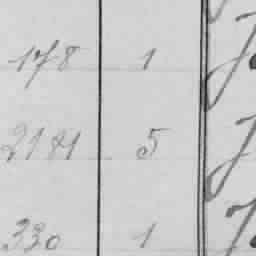 178 1
2181 5
330 1